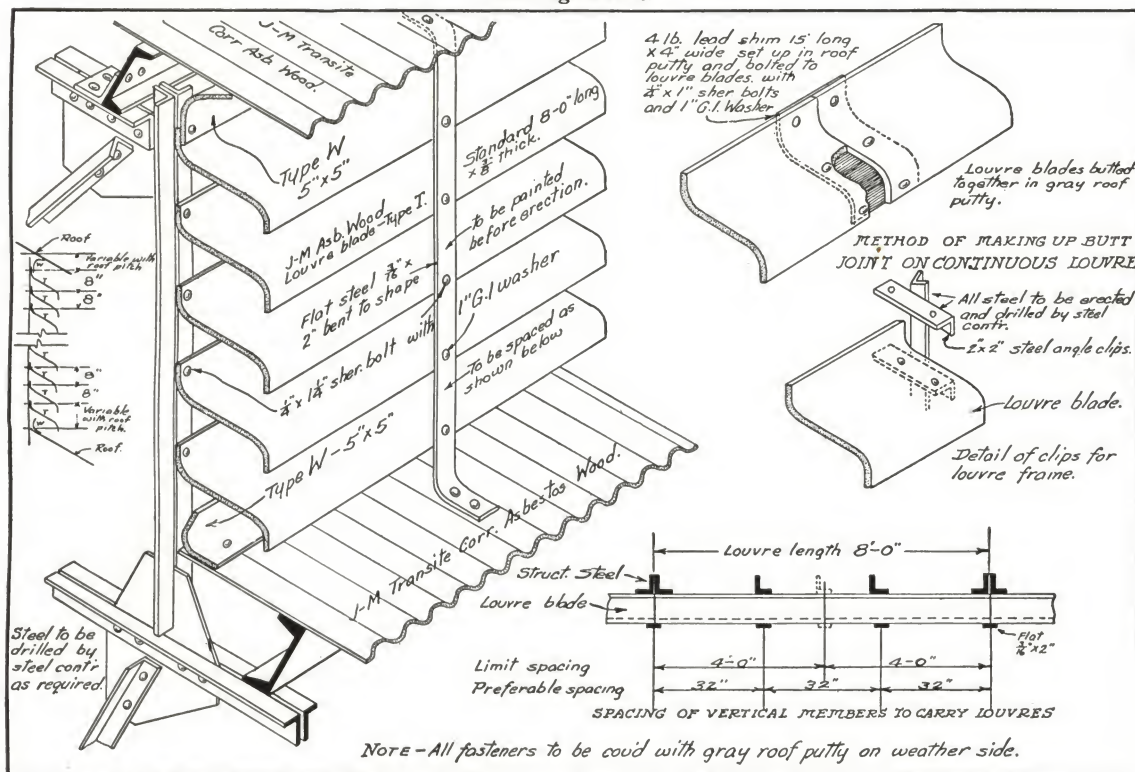 J-M Transite
Corr. Asb. Wood.
Type W
5"x5"
Standard 8'-0" long
x 3/8" thick.
J-M Asb. Wood
Louvre blade-Type I.
to be painted
before erection.
Flat steel 3/16" x
2" bent to shape
1" G.I washer
1/4" x 1 1/4" sher. bolt with
To be spaced as
shown below
Type W - 5"x5"
J-M Transite Corr. Asbestos Wood.
Roof
Variable with
roof pitch
W
8"
8"
8"
8"
Variable
with roof
pitch.
W
Roof.
Steel to be
drilled by
steel contr
as required.
4 lb. lead shim 15" long
x 4" wide set up in roof
putty and, bolted to
louvre blades. with
1/4" x 1" sher bolts
and 1" G.I. Washer
Louvre blades butted
together in gray roof
putty.
METHOD OF MAKING UP BUTT
JOINT ON CONTINUOUS LOUVRE
All steel to be erected
and drilled by steel
contr.
2"x2" steel angle clips.
Louvre blade.
Detail of clips for
louvre frame.
Louvre length 8'-0"
Struct. Steel
Louvre blade
Flat
3/16"x2"
Limit spacing
4'-0" 4'-0"
Preferable spacing
32" 32" 32"
SPACING OF VERTICAL MEMBERS TO CARRY LOUVRES
NOTE - All fasteners to be cov'd with gray roof putty on weather side.